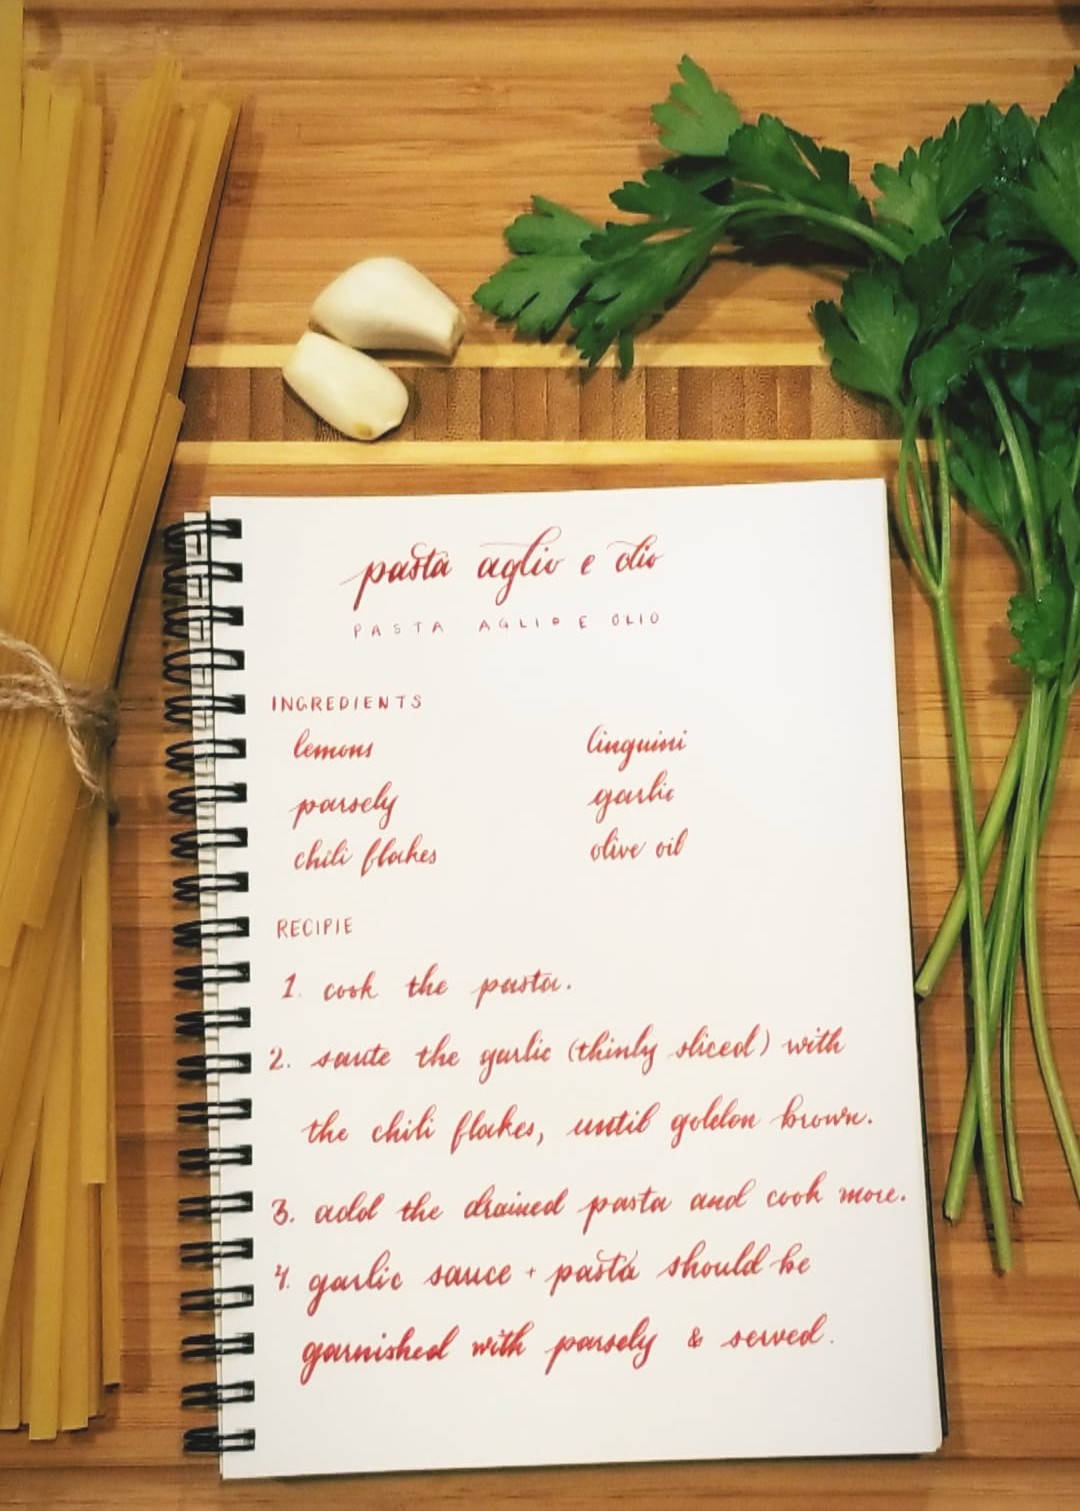 pasta aglio e olio
PASTA AGLIO E OLIO
INGREDIENTS
lemons
parsely
chili flakes
linguini
garlic
olive oil
RECIPIE
1. cook the pasta.
2. saute the garlic (thinly sliced) with
the chili flakes, until goldon brown.
3. add the drained pasta and cook more.
4. garlic sauce + pasta should be
garnished with parsely & served.